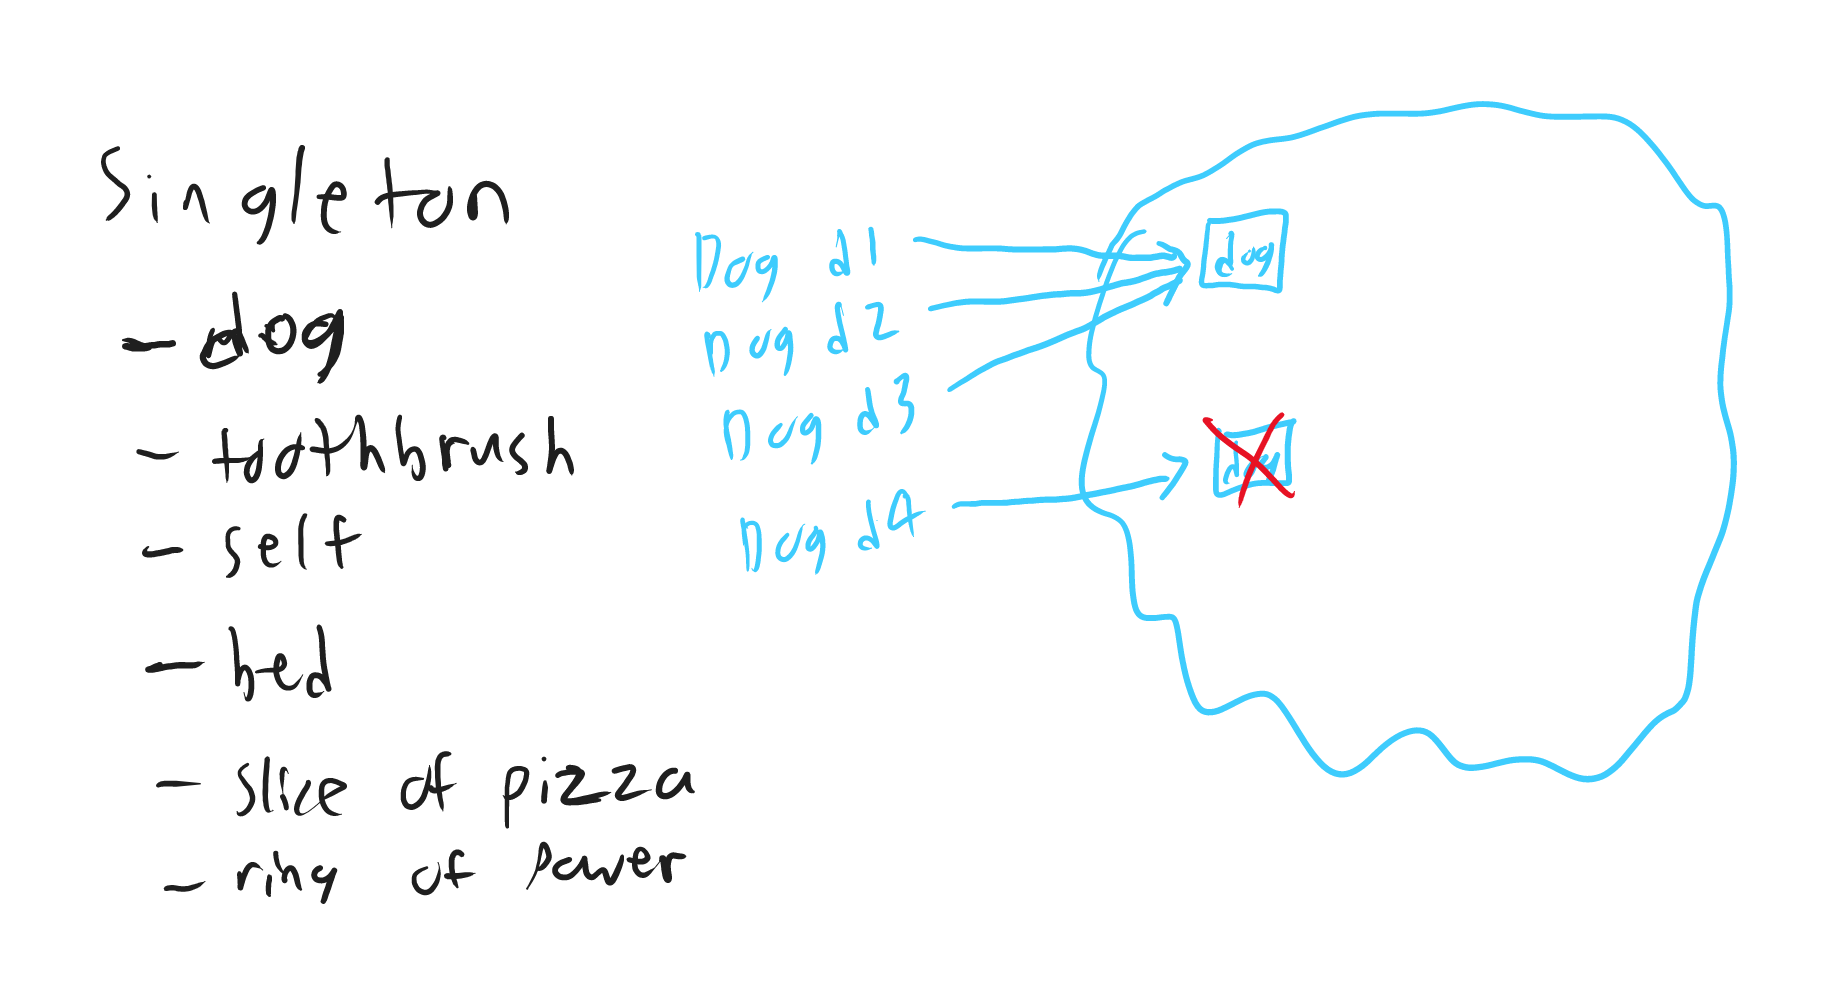 Singleton
- dog
- toothbrush
- self
- bed
- slice of pizza
- ring of power
Dog d1
Dog d2
Dog d3
Dog d4
dog
dog